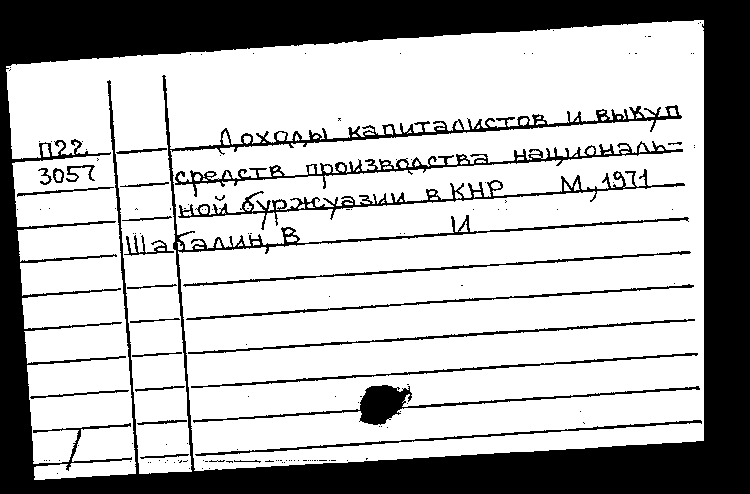 П22
3057
Доходы капиталистов и выкуп
средств производства националь-
ной буржуазии в КНР М., 1971
Шабалин, В И